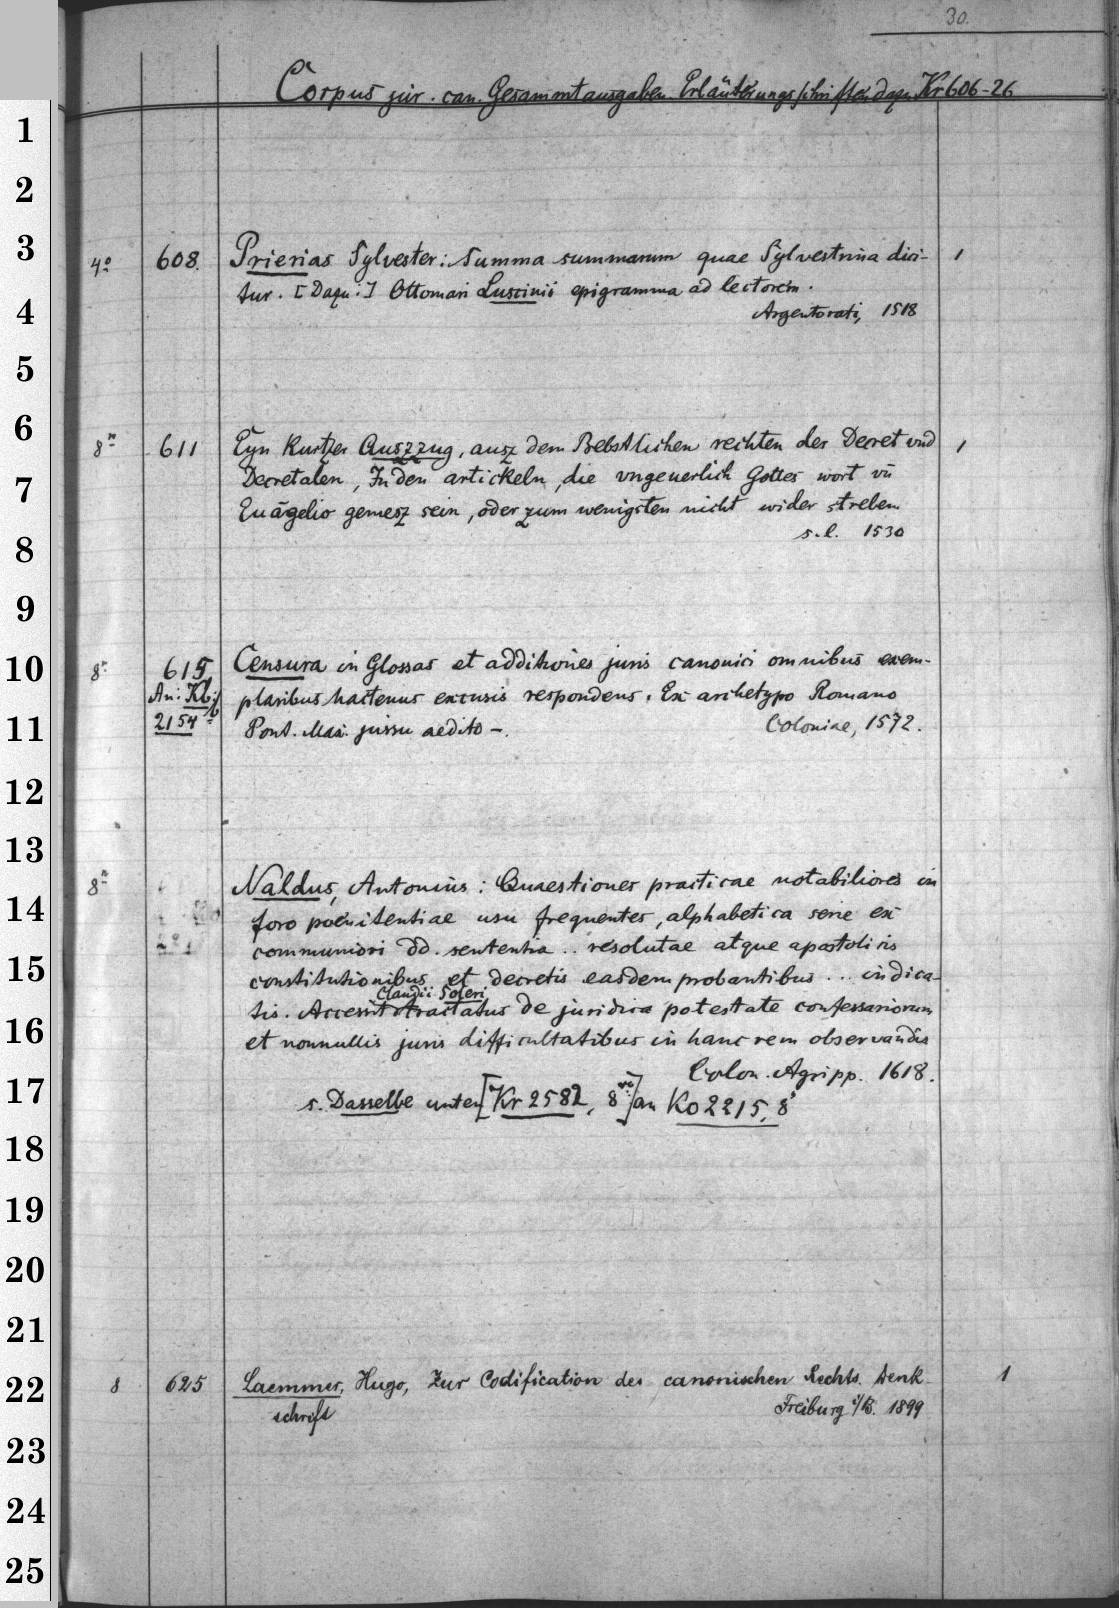 30.
Corpus jur. can. Gesammtausgaben. Erläuterungsschriften dazu Kr 606-26
4° 608. Prierias Sylvester: Summa summarum quae Sylvestrina dici- 1
tur. [Dazu:] Ottomari Luscinii epigramma ad lectorem.
Argentorati, 1518
8° 611 Eyn kurtzer Auszzug, ausz dem Bebstlichen rechten der Decret vnd 1
Decretalen, In den artickeln, die vngeuerlich Gottes wort vn̄
Euāgelio gemesz sein, oder zum wenigsten nicht wider streben
s. l. 1530
8° 615 Censura in Glossas et additiones juris canonici omnibus exem-
An: Kb: plaribus hactenus excusis respondens. Ex archetypo Romano
2154 Pont. Max. jussu aedito -. Coloniae, 1572.
8° Naldus, Antonius: Quaestiones practicae notabiliores in
foro poenitentiae usu frequentes, alphabetica serie ex
communiori dd. sententia .. resolutae atque apostolicis
constitutionibus et decretis easdem probantibus ... indica-
Claudii Soleri
tis. Accessit tractatus de juridica potestate confessariorum
et nonnullis juris difficultatibus in hanc rem observandis
Colon. Agripp. 1618.
s. Dasselbe unter [Kr 2582, 8°] an Ko 2215, 8°
8 625 Laemmer, Hugo, Zur Codification des canonischen Rechts. Denk 1
schrift Freiburg i/B. 1899
1
2
3
4
5
6
7
8
9
10
11
12
13
14
15
16
17
18
19
20
21
22
23
24
25